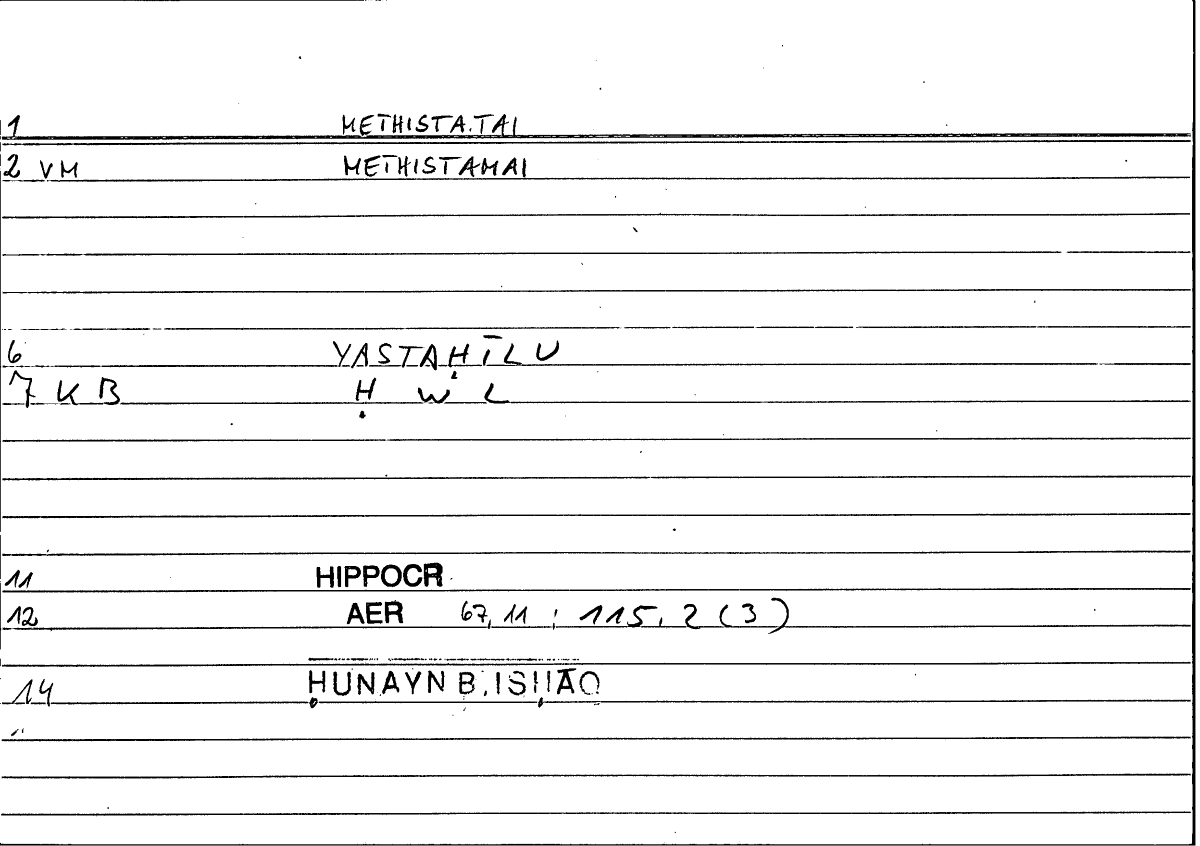 1 METHISTA.TAI
2 VM METHISTAMAI
6 YASTAḤĪLU
7 KB Ḥ W L
11 HIPPOCR
12 AER 67, 11 ; 115, 2 (3)
14 ḤUNAYN B. ISḤĀQ